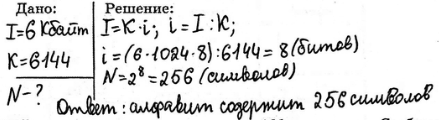 Дано:
I=6 Кбайт
K=6144
N-?
Решение:
I=K·i; i=I:K;
i=(6·1024·8):6144=8(битов)
N=2⁸=256 (символов)
Ответ: алфавит содержит 256 символов